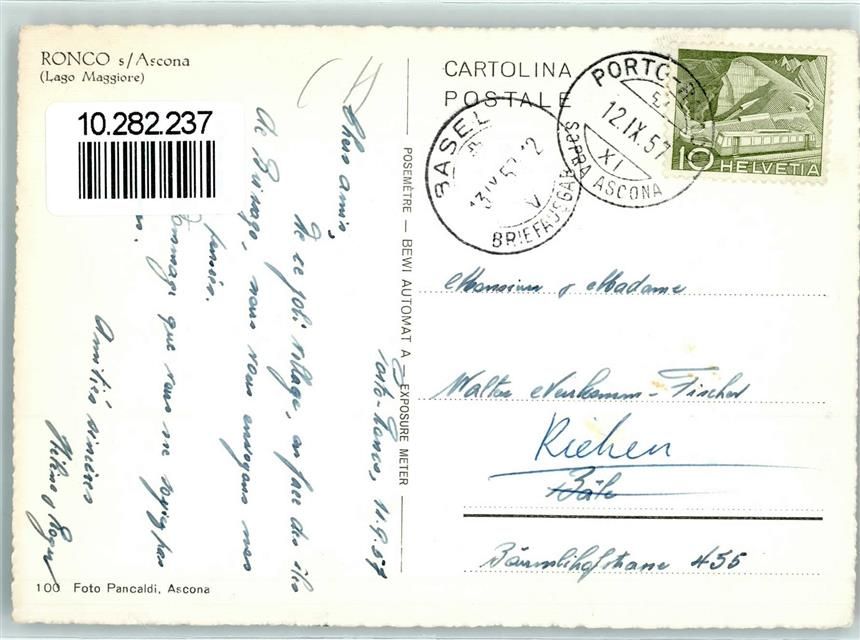 RONCO s/Ascona
(Lago Maggiore)
10.282.237
Porto-Ronco, 11.9.57
Chers amis,
De ce joli village, en face des îles
de Brissago, nous vous envoyons nos
pensées.
Dommage que vous ne soyez pas
Amitiés sincères
Roger
100 Foto Pancaldi, Ascona
POSEMÈTRE – BEWI AUTOMAT A – EXPOSURE METER
CARTOLINA
POSTALE
BASEL
13.IX.57-12
V
BRIEFAUSGABE
PORTO-R
12.IX.57
XI
SOPRA ASCONA
10 HELVETIA
Monsieur & Madame
Walter Neukomm-Fischer
Riehen
Bâle
Bäumlihofstrasse 455